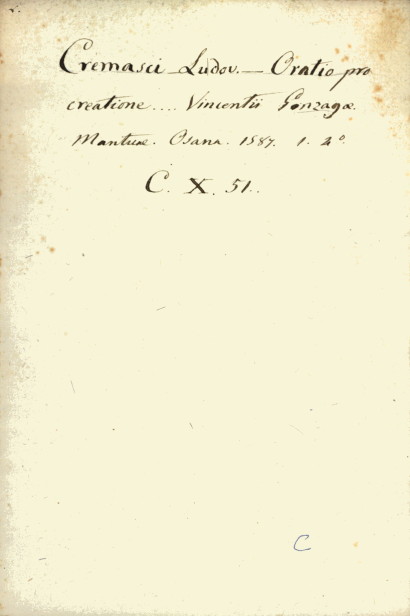 Cremasci Ludov. — Oratio pro
creatione.... Vincentii Gonzagæ.
Mantuæ. Osana. 1587. 1. 4°
C. X. 51.
C